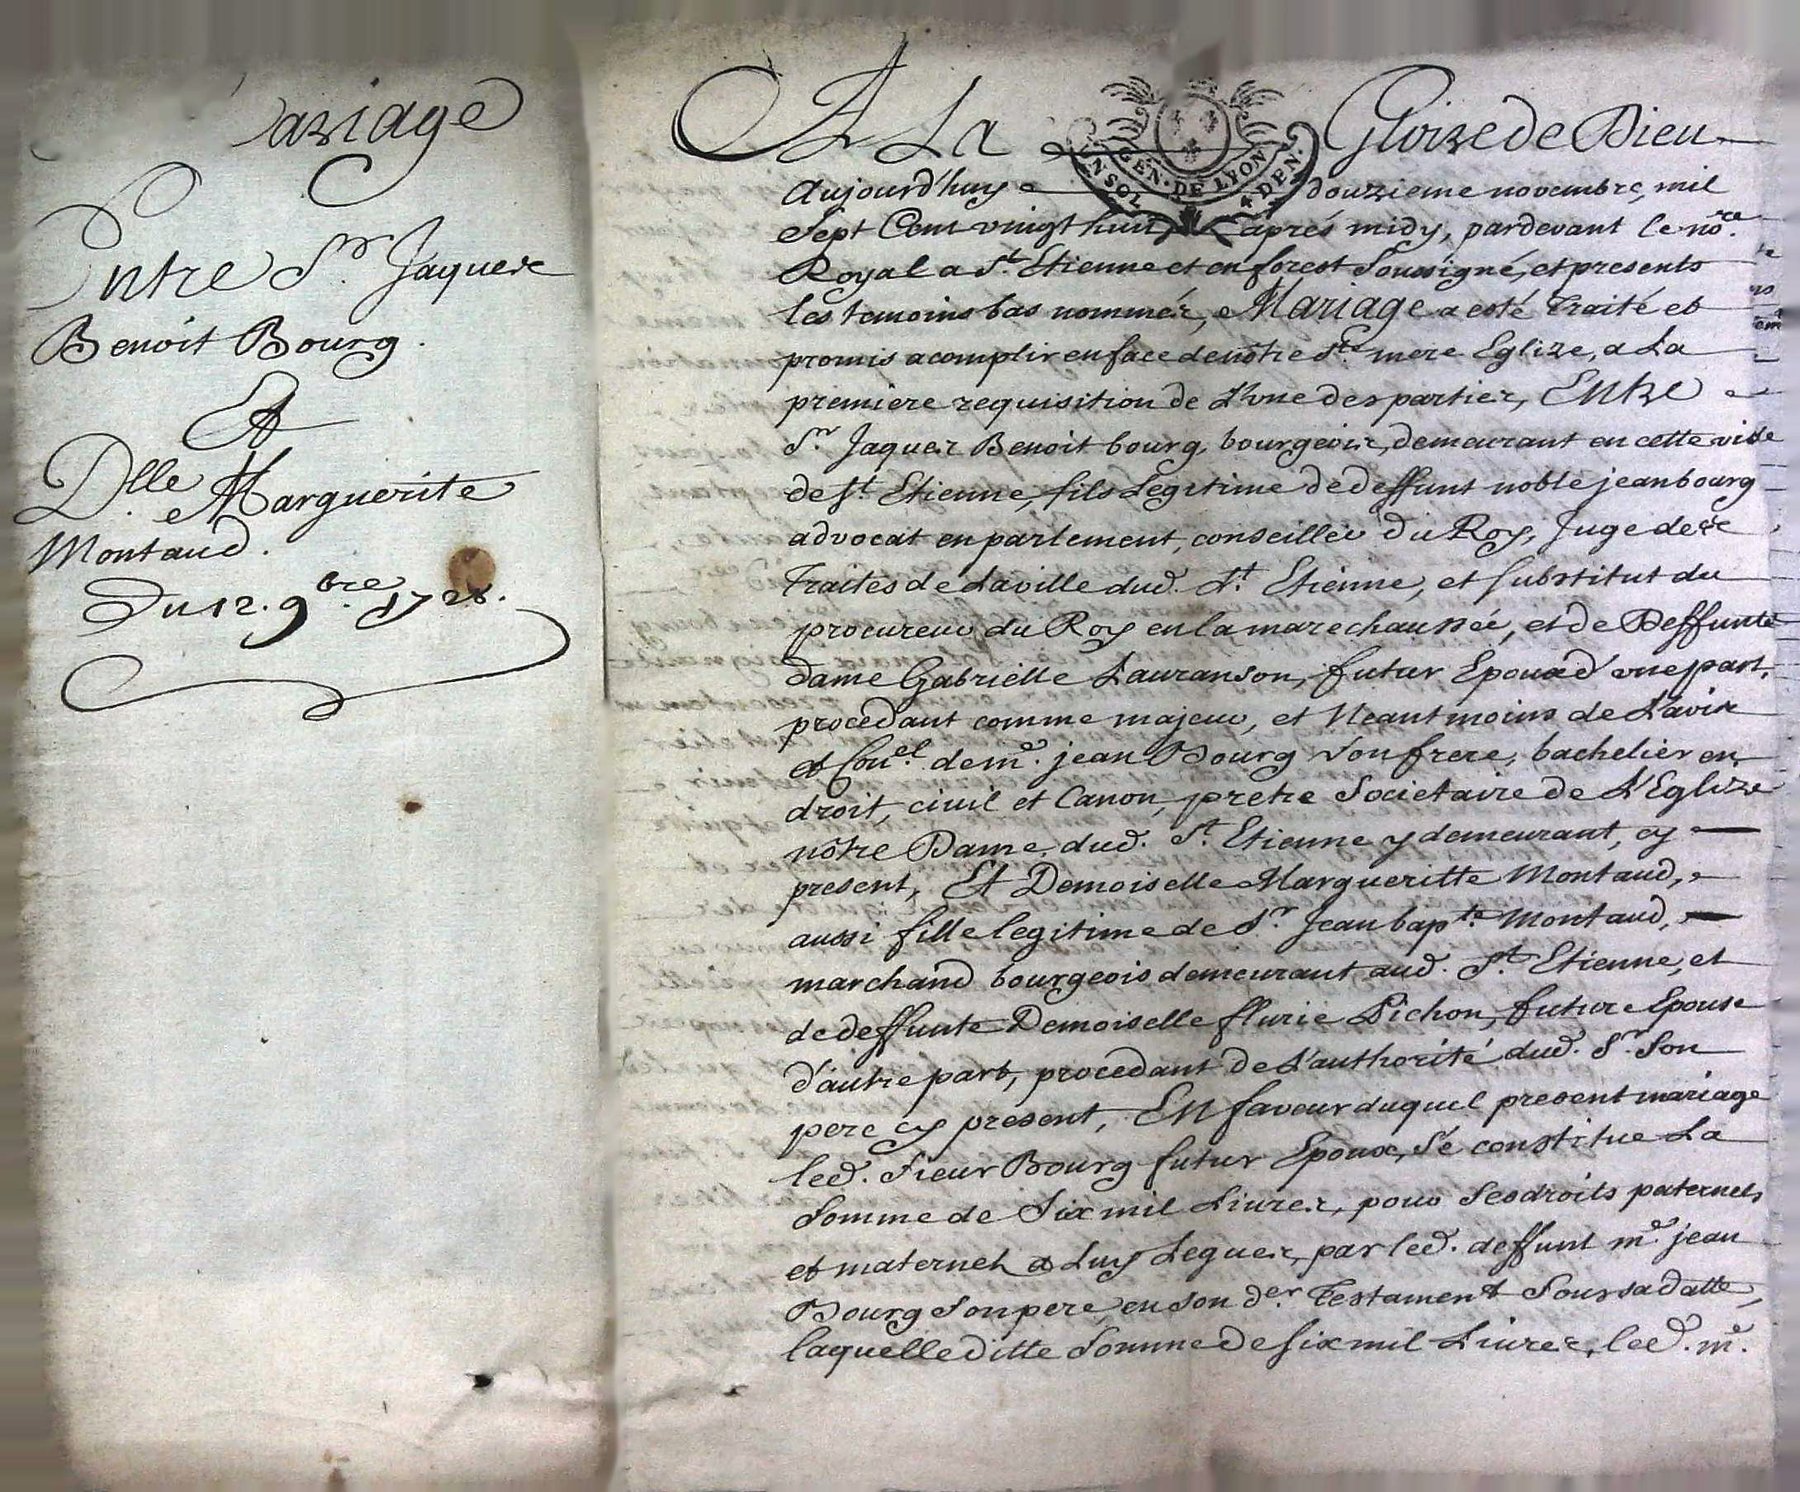 Mariage
Entre Sr. Jaques
Benoit Bourg.
Et
Dlle. Marguerite
Montaud.
Du 12. 9bre. 1728.
A La Gloire de Dieu
GEN. DE LYON
UN SOL 4 DEN.
Aujourd'huy douzieme novembre, mil
Sept Cent vingt huit après midy, pardevant le nore.
Royal a St. Etienne et en forest Soussigné, et presents
les temoins bas nommés, Mariage a esté traité et
promis acomplir en face de nôtre Ste mere Eglize, a La
premiere requisition de L'une des parties, Entre
Sr. Jaques Benoit bourg, bourgeois, demeurant en cette ville
de St. Etienne, fils Legitime de deffunt noble jean bourg
advocat en parlement, conseiller du Roy, Juge des
traites de La ville dud. St. Etienne, et substitut du
procureur du Roy en la marechaussée, et de Deffunte
dame Gabrielle Lauranson, futur Epoux d'une part,
procedant comme majeur, et Neantmoins de L'avis
et Conel. de me. jean Bourg son frere, bachelier en
droit, civil et Canon, pretre Societaire de L'Eglize
nôtre Dame, dud. St. Etienne y demeurant, cy
present, Et Demoiselle Margueritte Montaud,
aussi fille legitime de Sr. Jean bapte. Montaud,
marchand bourgeois demeurant aud. St. Etienne, et
de deffunte Demoiselle flurie Pichon, future Epouse
d'autre part, procedant de L'authorité dud. Sr. Son
pere cy present, En faveur duquel present mariage
led. Sieur Bourg futur Epoux, Se constitue La
Somme de Six mil Livres, pour Ses droits paternels
et maternels a Luy Legues, par led. deffunt me. jean
Bourg Son pere, en son der. Testament Sous sa datte,
laquelle ditte Somme de six mil Livres, led. me.